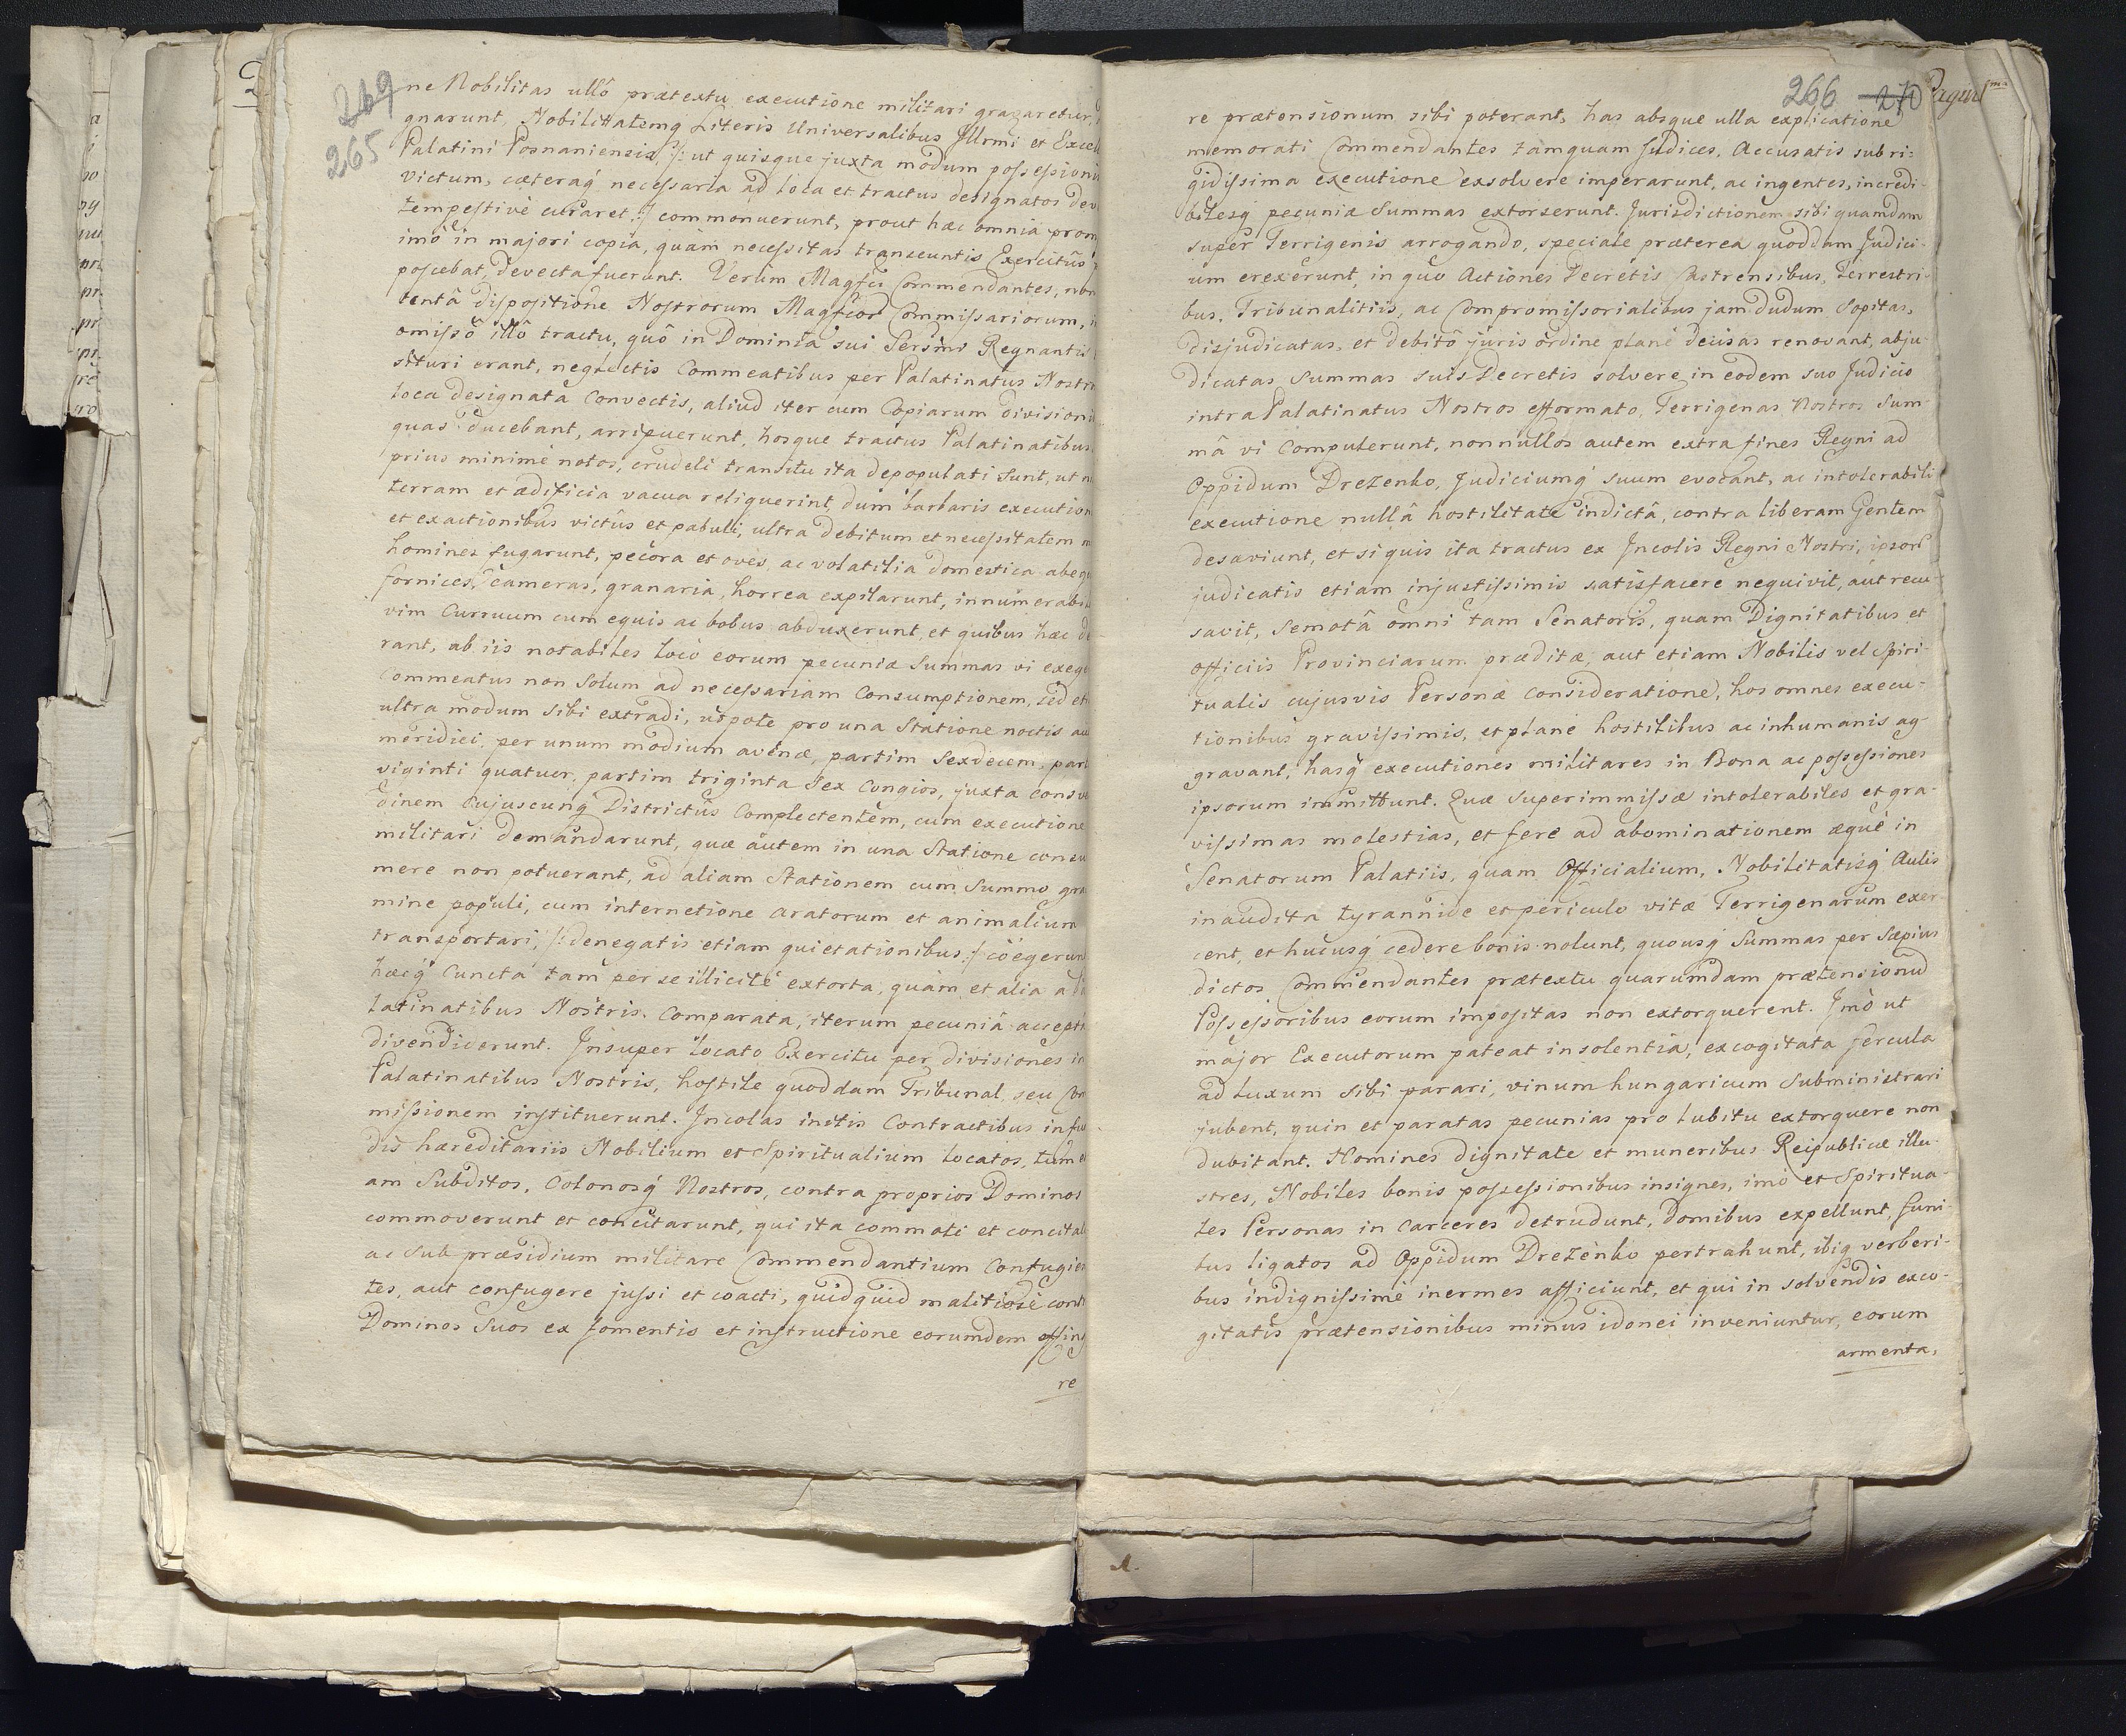 269
265
ne Nobilitas ullô prætextu executione militari gravaretur,
gnarunt, Nobilitatemq́ Literis Universalibus Jllrmi et Excel
Palatini Posnaniensis /: ut quisque juxta modum possessioni
victum, cæteraq́ necessaria ad loca et tractus designatos dev
tempestivè curaret :/ commonuerunt, prout hæc omnia prom
imò in majori copia, quàm necessitas transeuntis Exercitûs
poscebat, devecta fuerunt. Verùm Magfci Commendantes, non
tentâ dispositione Nostrorum Magfcor Commissariorum,
omissô illô tractu, quô in Dominia sui Sersmi Regnantis
situri erant, neglectis Commeatibus per Palatinatus Nostr
loca designata convectis, aliud iter cum Copiarum divisioni
quas ducebant, arripuerunt, hosque tractus Palatinatibus
prius minimè notos, crudeli transitu ita depopulati sunt, ut n
terram et ædificia vacua reliquerint, dum barbaris execution
et exactionibus victûs et pabuli, ultra debitum et necessitatem
homines fugarunt, pecora et oves, ac volatilia domestica abeg
fornices, cameras, granaria, horrea expilarunt, innumerabi
vim Curruum cum equis ac bobus abduxerunt, et quibus hæc de
rant, ab iis notabiles locô eorum pecuniæ summas vi exeg
Commeatus non solum ad necessariam Consumptionem, sed et
ultra modum sibi extradi, utpote pro una Statione noctis au
meridiei, per unum modium avenæ, partim Sexdecem, part
viginti quatuor, partim triginta sex Congios, juxta consve
dinem cujuscunq́ Districtûs Complectentem, cum executione
militari demandarunt, quæ autem in una Statione consu
mere non potuerant, ad aliam Stationem cum Summo gra
mine populi, cum internetione aratorum et animalium
transportari, /: denegatis etiam quietationibus :/ coëgerun
hæcq́ cuncta tam per se illicitè extorta, quàm et alia a
latinatibus Nostris comparata, iterum pecuniâ acceptâ
divendiderunt. Jnsuper locato Exercitu per divisiones in
Palatinatibus Nostris, hostile quoddam Tribunal, seu Com
missionem instituerunt. Jncolas initis Contractibus in fun
dis hæreditariis Nobilium et Spiritualium locatos, tum e
am Subditos, Colonosq́ Nostros, contra proprios Dominos
commoverunt et concitarunt, qui ita commoti et concitat
ac sub præsidium militare Commendantium confugien
tes, aut confugere jussi et coacti, quidquid malitiosè cont
Dominos suos ex fomentis et instructione eorumdem effing
re
266 270
re prætensionum sibi poterant, has absque ulla explicatione
memorati Commendantes tamquam Judices, Accusatis sub ri-
gidissima executione exsolvere imperarunt, ac ingentes, incredi-
bilesq́ pecuniæ Summas extorserunt. Jurisdictionem sibi quamdam
super Terrigenis arrogando, speciale præterea quoddam Judici-
um erexerunt, in quo Actiones Decretis Castrensibus, Terrestri-
bus, Tribunalitiis, ac Compromissorialibus jam dudum sopitas,
disjudicatas, et debitô juris ordine planè decisas renovant, abju-
dicatas Summas suis Decretis solvere, in eodem suo Judicio
intra Palatinatus Nostros efformato, Terrigenas Nostros Sum-
mâ vi Compulerunt, nonnullos autem extra fines Regni ad
Oppidum Drezenko, Judiciumq́ suum evocant, ac intolerabili
executione nullâ hostilitate indictâ, contra liberam Gentem
desæviunt, et si quis ita tractus ex Jncolis Regni Nostri, ipsor
judicatis etiam injustissimis satisfacere nequivit, aut recu-
savit, semotâ omni tam Senatoris, quam Dignitatibus et
officiis Provinciarum præditæ, aut etiam Nobilis vel Spiri-
tualis cujusvis Personæ consideratione, hos omnes execu-
tionibus gravissimis, et planè hostilibus ac inhumanis ag-
gravant, hasq́ executiones militares in Bona ac possessiones
ipsorum immittunt. Quæ superimmissæ intolerabiles et gra-
vissimas molestias, et fere ad abominationem æquè in
Senatorum Palatiis, quam Officialium, Nobilitatisq́ Aulis
inaudita tyrannide et periculo vitæ Terrigenarum exer
cent, et hucusq́ cedere bonis nolunt, quousq́ Summas per Sæpius
dictos Commendantes prætextu quarumdam prætensionū
Possessoribus eorum impositas non extorquerent. Jmò ut
major Executorum pateat insolentia, excogitata fercula
ad luxum sibi parari, vinum hungaricum subministrari
jubent, quin et paratas pecunias pro lubitu extorquere non
dubitant. Homines dignitate et muneribus Reipublicæ illu-
stres, Nobiles bonis possessionibus insignes, imò et Spiritua-
les Personas in carceres detrudunt, domibus expellunt, funi-
bus ligatos ad Oppidum Drezenko pertrahunt, ibiq́ verberi-
bus indignissimè inermes afficiunt, et qui in solvendis exco-
gitatis prætensionibus minus idonei inveniuntur, eorum
armenta,